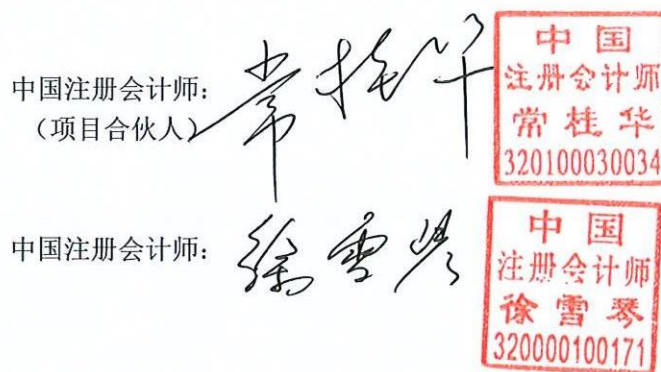 中国注册会计师：
（项目合伙人）
常桂华
中国
注册会计师
常桂华
320100030034
中国注册会计师：
徐雪琴
中国
注册会计师
徐雪琴
320000100171